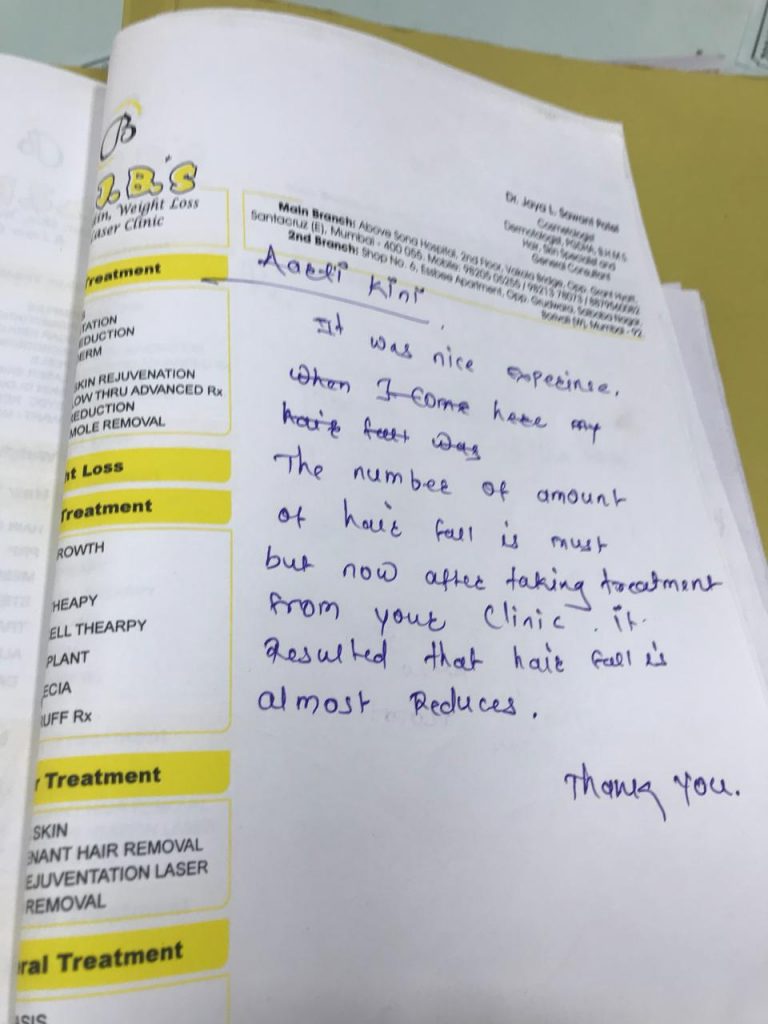 J.B'S
in, Weight Loss
Laser Clinic
Dr. Jaya L. Sawant Patel
Cosmetologist
Dermatologist, PGDHA, B.H.M.S
Hair, Skin Specialist and
General Consultant
Main Branch: Above Sona Hospital, 2nd Floor, Vakola Bridge, Opp. Grant Hyatt,
Santacruz (E), Mumbai - 400 055. Mobile: 98205 05255 / 98213 78073 / 8879540082
2nd Branch: Shop No. 6, Essbee Apartment, Opp. Gurudwara, Saibaba Nagar,
Borivali (W), Mumbai - 92
Treatment
TATION
EDUCTION
ERM
SKIN REJUVENATION
LOW THRU ADVANCED Rx
REDUCTION
MOLE REMOVAL
ht Loss
Treatment
ROWTH
HEAPY
ELL THEARPY
PLANT
ECIA
UFF Rx
r Treatment
SKIN
NANT HAIR REMOVAL
EJUVENTATION LASER
REMOVAL
ral Treatment
ASIS
Aarti Kini
It was nice experinse.
When I come here my
hair fall was
The number of amount
of hair fall is must
but now after taking treatment
from your Clinic. it
Resulted that hair fall is
almost Reduces.
Thank You.